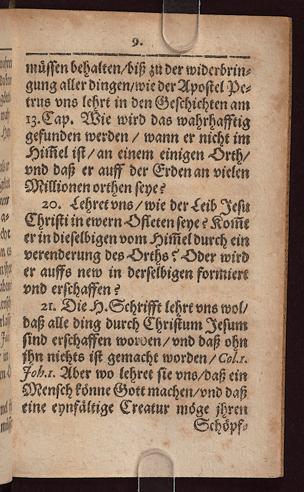 9.
müssen behalten/biß zu der widerbrin-
gung aller dingen/wie der Apostel Pe-
trus vns lehrt in den Geschichten am
13. Cap. Wie wird das wahrhafftig
gefunden werden / wann er nicht im
Him̃el ist/ an einem einigen Orth/
vnd daß er auff der Erden an vielen
Millionen orthen seye?
20. Lehret vns/ wie der Leib Jesu
Christi in ewern Ofleten seye? Kom̃t
er in dieselbigen vom Him̃el durch ein
verenderung des Orths? Oder wird
er auffs new in derselbigen formiert
vnd erschaffen?
21. Die H. Schrifft lehrt vns wol/
daß alle ding durch Christum Jesum
sind erschaffen worden/ vnd daß ohn
jhn nichts ist gemacht worden/ Col.1.
Joh.1. Aber wo lehret sie vns/daß ein
Mensch könne Gott machen/vnd daß
eine eynfältige Creatur möge jhren
Schöpf-